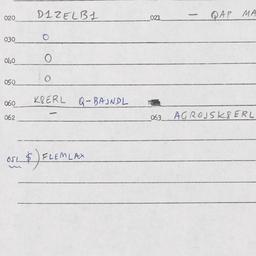 020 D1ZELB1 021 — QAP MA
030 0
040 0
050 0
060 K8ERL Q-BAJNDL
062 — 063 AGROJSK8ERL
051 $) FLEMLAX